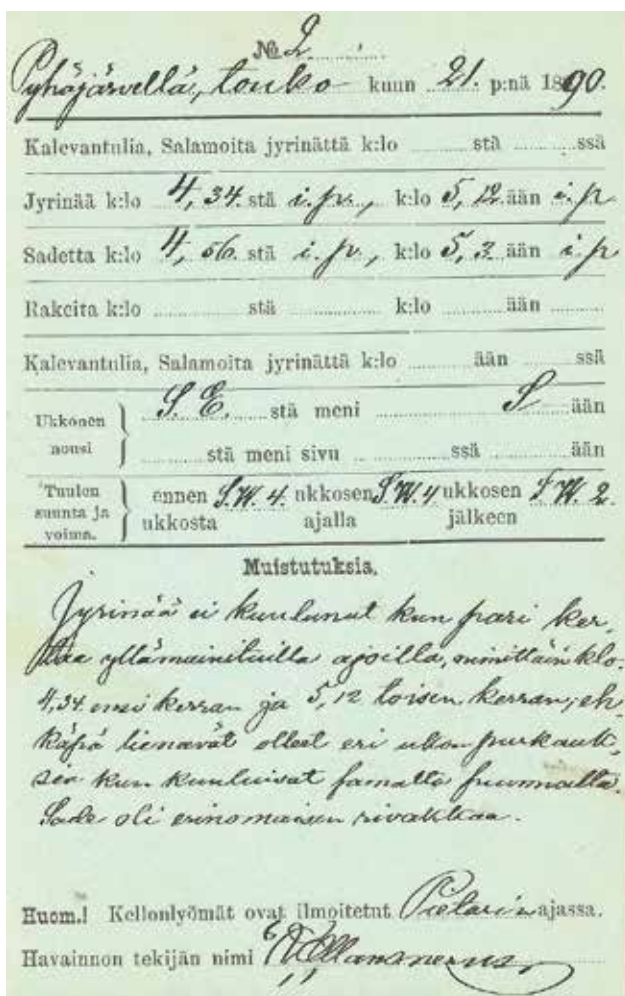 № 2
Pyhäjärvellä, touko kuun 21. p:nä 1890.
Kalevantulia, Salamoita jyrinättä k:lo ........ stä ........ ssä
Jyrinää k:lo 4,34. stä i. p., k:lo 5,12. ään i. p
Sadetta k:lo 4,56. stä i. p., k:lo 5,3. ään i. p
Rakeita k:lo ........ stä ........ k:lo ........ ään ........
Kalevantulia, Salamoita jyrinättä k:lo ........ ään ssä
Ukkonen nousi } S. E. stä meni S ään
........ stä meni sivu ........ ssä ........ ään
Tuulen suunta ja voima. } ennen ukkosta S.W. 4. ukkosen ajalla S.W. 4 ukkosen jälkeen S.W. 2.
Muistutuksia.
Jyrinää ei kuulunut kun pari ker-
taa yllämainituilla ajoilla, nimittäin klo.
4,34. ensi kerran ja 5,12 toisen kerran; eh-
käpä lienevät olleet eri ukon purkauk-
sia kun kuuluivat samalta suunnalta.
Sade oli erinomaisen rivakkaa.
Huom.! Kellonlyömät ovat ilmoitetut Pietarin ajassa.
Havainnon tekijän nimi